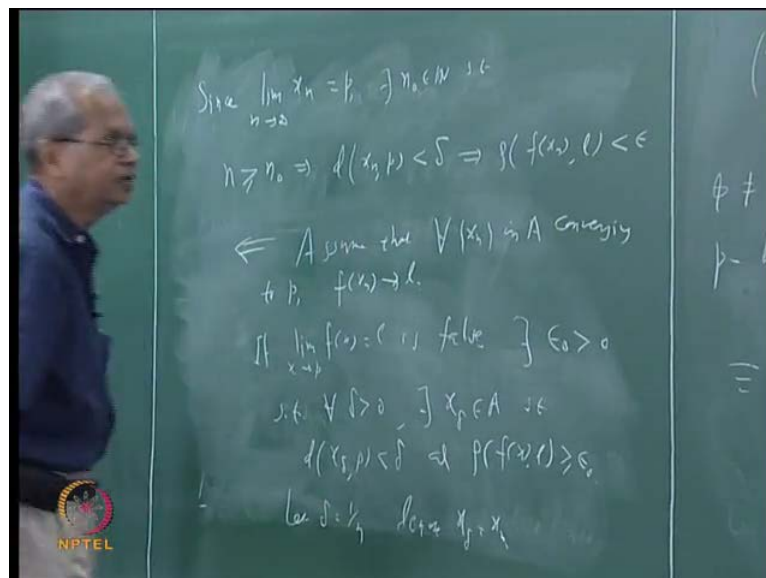 Since lim x_n = p, ∃ n_0 ∈ ℕ s.t
n→∞
n ≥ n_0 ⇒ d(x_n, p) < δ ⇒ ρ(f(x_n), l) < ε
⇐ Assume that ∀ (x_n) in A converging
to p, f(x_n) → l.
If lim f(x) = l is false ∃ ε_0 > 0
x→p
s.t. ∀ δ > 0, ∃ x_δ ∈ A s.t
d(x_δ, p) < δ and ρ(f(x), l) ≥ ε_0
δ = 1/n x_δ = x_n
(
p ≠
p -
≡
NPTEL